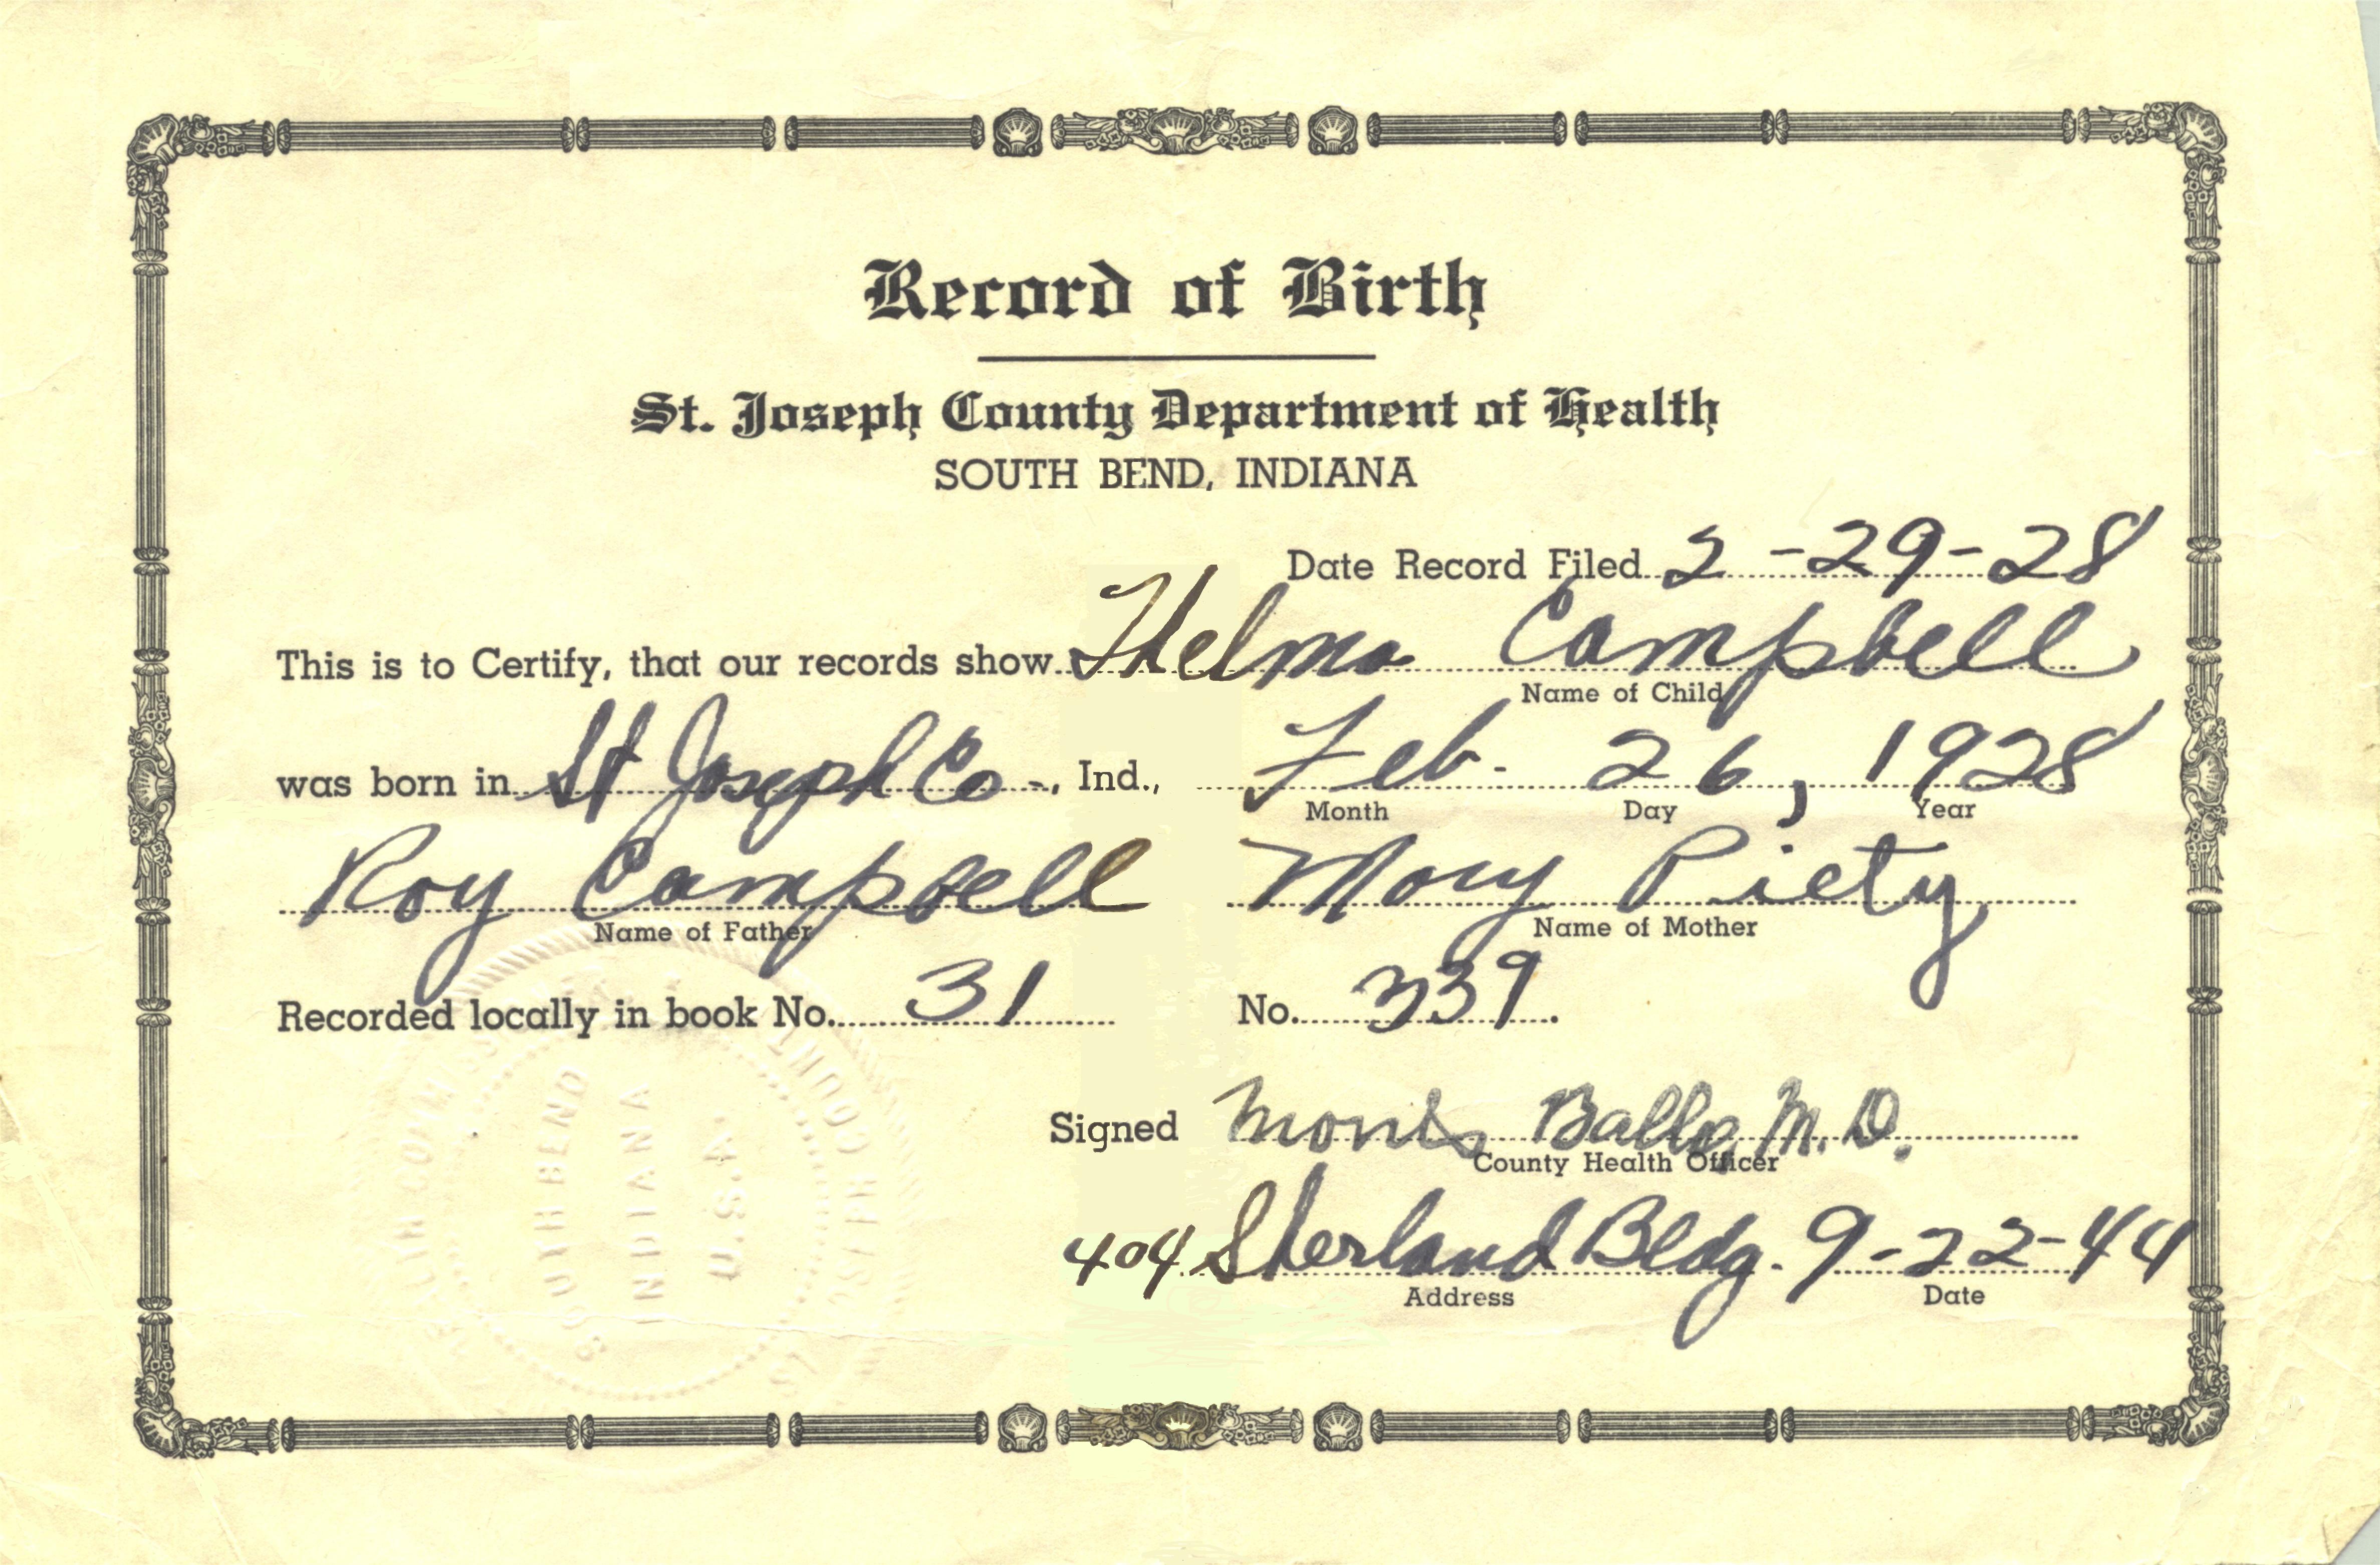 Record of Birth
St. Joseph County Department of Health
SOUTH BEND, INDIANA
Date Record Filed 2-29-28
This is to Certify, that our records show Thelma Campbell
Name of Child
was born in St Joseph Co-, Ind., Feb. 26, 1928
Month Day Year
Roy Campbell Mary Piety
Name of Father Name of Mother
Recorded locally in book No. 31 No. 339.
Signed M.D.
County Health Officer
404 Sherland Bldg. 9-22-44
Address Date
SOUTH BEND
INDIANA
U.S.A.